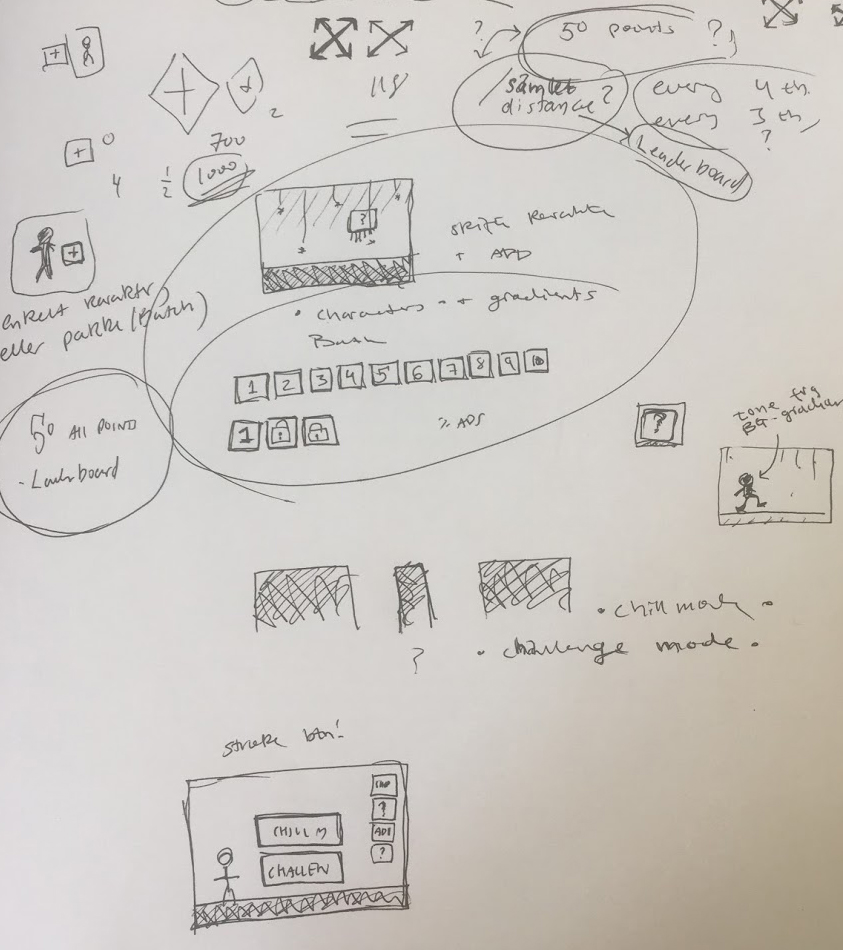 ?
50 points ?
samlet
distance?
every 4 th.
every 3 th,
?
Leaderboard
+
+
+
2
118
700
1/2
1000
+
0
4
?
+
+ ADD
enkelt karakter
eller pakke (Batch)
• characters - + gradients
1 2 3 4 5 6 7 8 9 10
1
% ADS
50 All POINT
- Leaderboard
?
tone fra
BG-gradient
• chill mode •
?
• challenge mode •
større btn!
CHILL M
CHALLEN
?
ADS
?